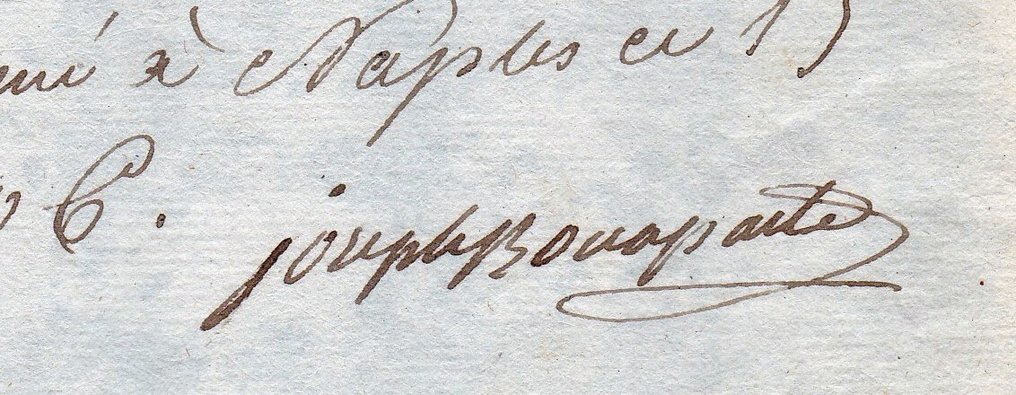 à Naples ce 15
joseph Bonaparte